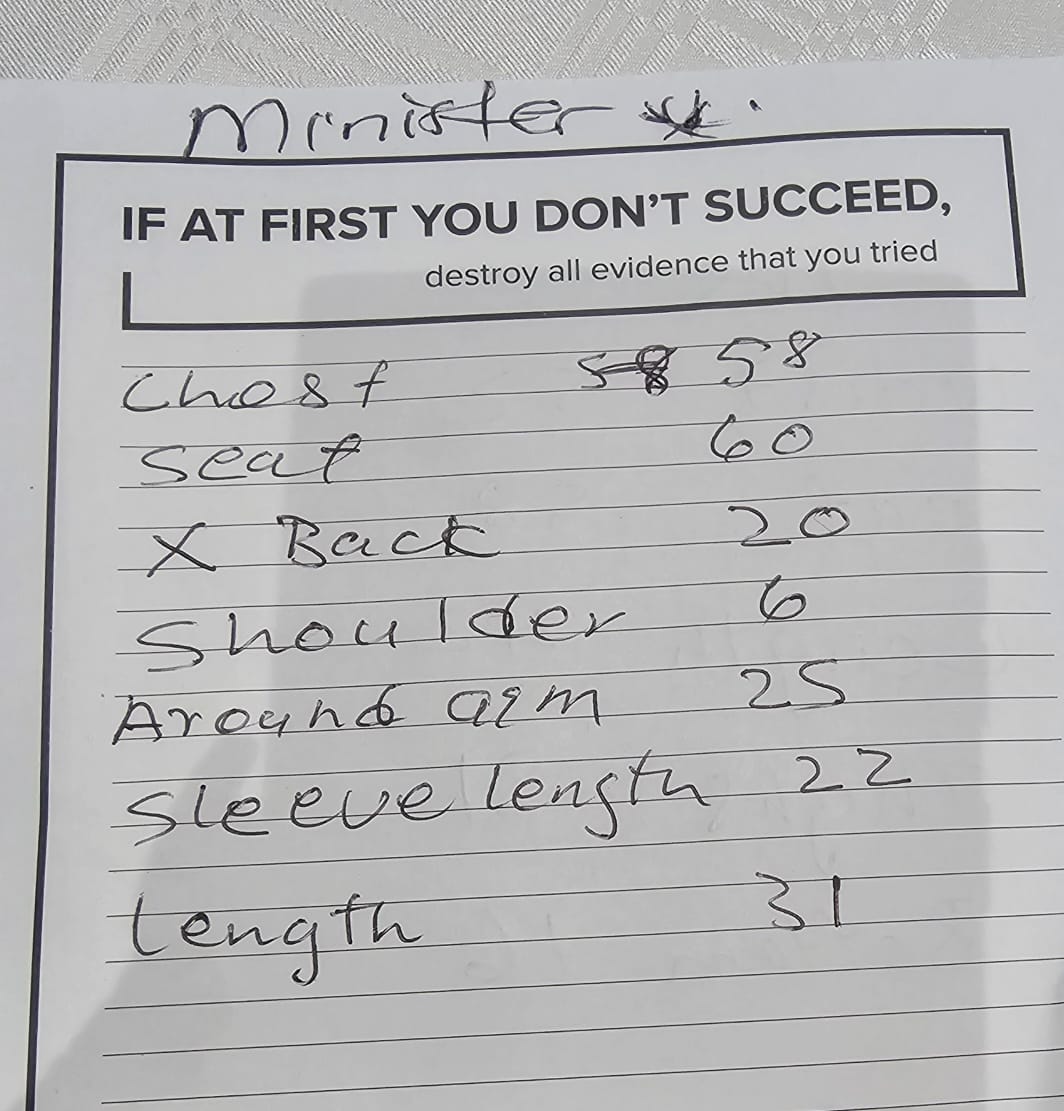 Minister
IF AT FIRST YOU DON'T SUCCEED,
destroy all evidence that you tried
Chest 58 58
Seat 60
X Back 20
Shoulder 6
Around arm 25
Sleeve length 22
Length 31